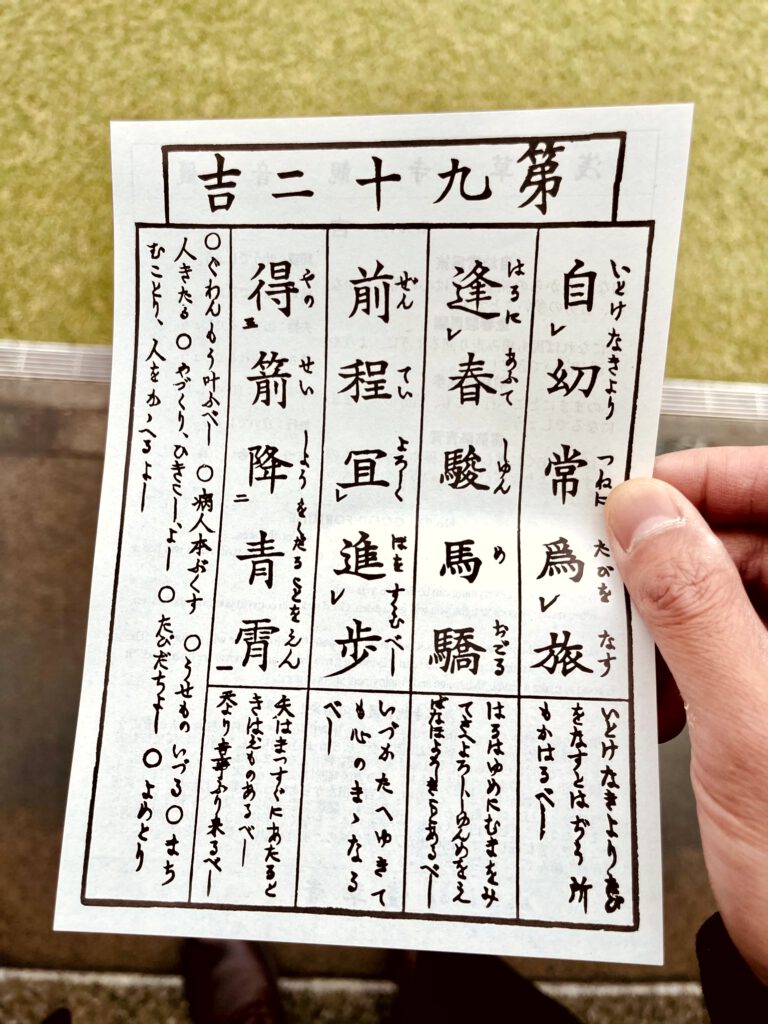 第九十二吉
自幼常爲旅
いとけなきより つねに たびを なす
逢春駿馬驕
はるに あふて しゆん め おごる
前程冝進歩
ぜん てい よろしく ほを すゝむべし
得箭降青霄
やの せい しようを くだることをえん
いとけなきより たび
をなすとはぢう 所
もかはるべし
はるはゆめにむまをみ
てさへよろししゆんめをえ
ばなほよろしきことあるべし
いづかたへゆきて
も心のまゝなる
べし
矢はまつすぐにあたると
きはゑものあるべし
天より吉事ふり来るべし
○ぐわんもう叶ふべし ○病人本ぶくす ○うせものいづる○まち
人きたる ○やづくり、ひきこし、よし ○たびだちよし ○よめとり
むことり、人をかゝへるよし
浅草寺観音籤